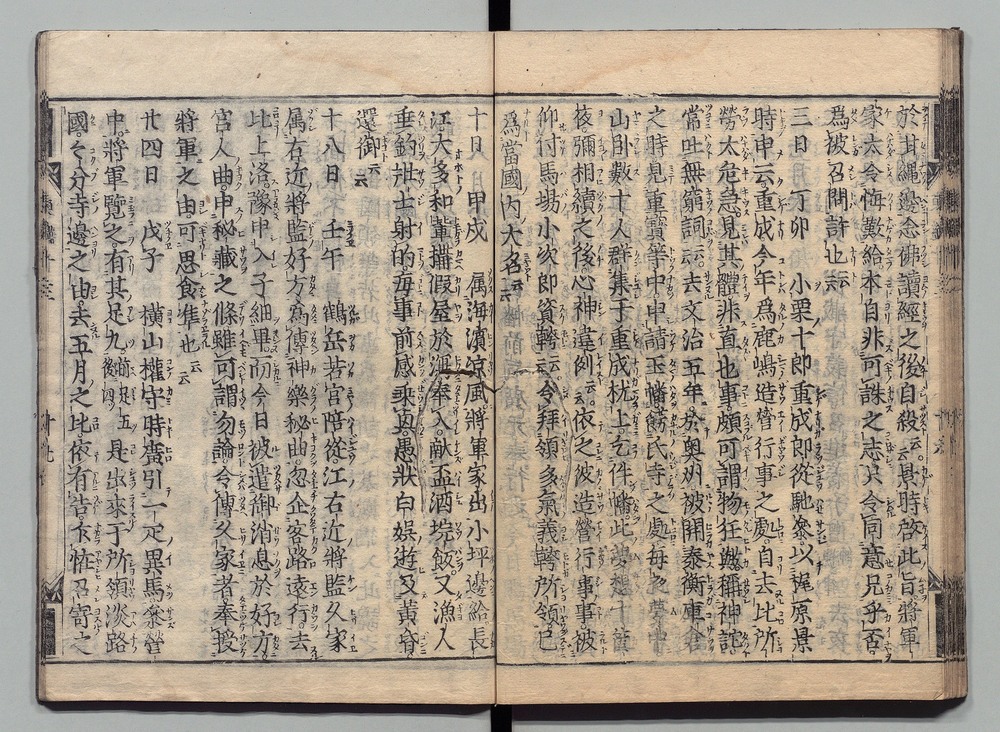 於其縄邊念佛讀經之後自殺云云景時啓此旨將軍
家太令悔歎給本自非可誅之志只令同意兄乎否
爲被召問許也云云
三日　丁卯　小栗十郎重成郎從馳參以梶原景
時申云重成今年爲鹿嶋造營行事之處自去比所
勞太危急見其體非直也事頗可謂物狂歟稱神詫
常吐無窮詞云云去文治五年於奥州被開泰衡庫倉
之時見重寶等中申請玉幡餝氏寺之處毎夜夢中
山臥數十人群集于重成枕上乞件幡此夢想十箇
夜彌相續之後心神違例云云依之彼造營行事事被
仰付馬場小次郎資幹云云令拜領多氣義幹所領已
爲當國内大名云云
十日　甲戌　属海濱涼風將軍家出小坪邊給長
江大多和輩搆假屋於潟奉入献盃酒垸飯又漁人
垂釣壯士射的毎事前感乗興愚狀白娯遊及黄昏
還御云云
十八日　壬午　鶴岳若宮陪從江右近將監久家
属右近將監好方爲傳神樂秘曲忽企客路遠行去
比上洛豫申入子細畢而今日被遣御消息於好方
宮人曲申秘藏之條雖可謂勿論令傳久家者奉授
將軍之由可思食准也云云
廿四日　戊子　横山權守時廣引一疋異馬參營
中將軍覽之有其足九前足五後四是出來于所領淡路
國國分寺邊之由去五月之比依有告乍恠召寄之